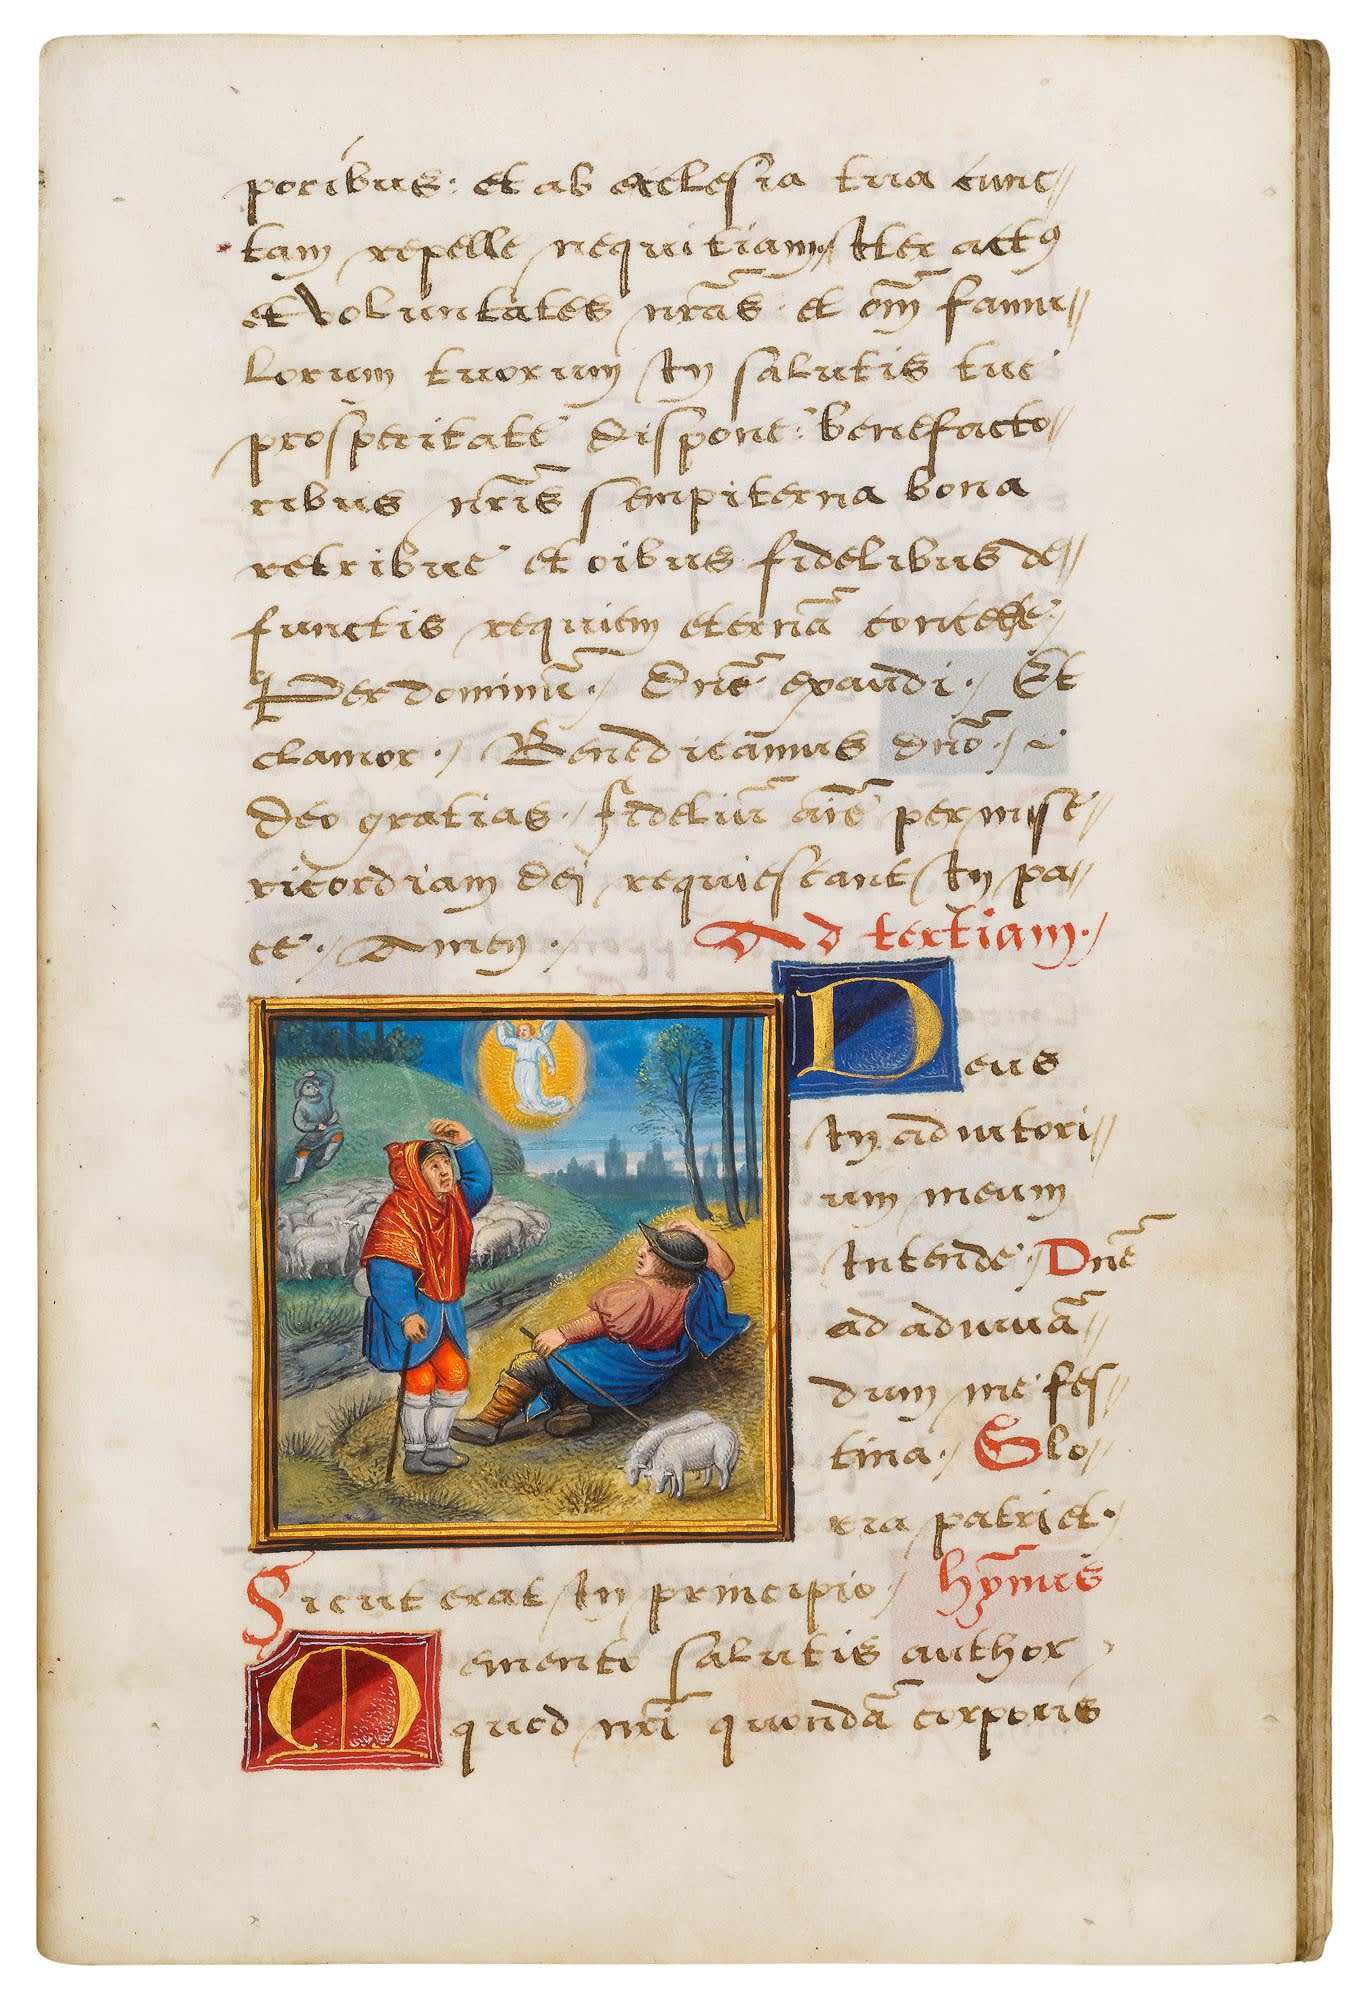 poribus: et ab ecclesia tua cunc//
tam repelle nequitiam / Iter actꝯ
et voluntates nr̃as et om̃ famu//
lorum tuorum In salutis tue
prosperitate dispone: benefacto
ribus nr̃is sempiterna bona
retribue et oĩbus fidelibus de//
functis requiem eternã concede.
Per dominũ. / Dñe exaudi. / Et
clamor. / Benedicamus dño. /
Deo gratias. / fideliũ aĩe per mise//
ricordiam dei requiescant In pa//
ce. / Amen. / Ad tertiam. /
Deus
In adiutori//
um meum
Intende / Dñe
ad adiuuã//
dum me fes//
tina. / Glo//
ria patri et.
Sicut erat In principio / hỹnus
Memento salutis author
quod nr̃i quondã corporis